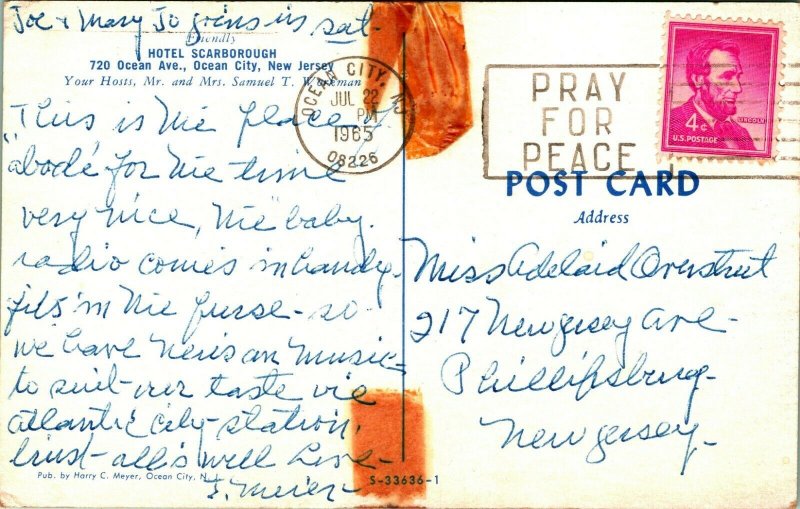 Joe & Mary Jo joins us sat-
Friendly
HOTEL SCARBOROUGH
720 Ocean Ave., Ocean City, New Jersey
Your Hosts, Mr. and Mrs. Samuel T. Workman
This is the place of
"abode" for the time
very nice, the baby
radio comes in handy-
fits in the purse - so
we have news an music
to suit our taste via
atlantic city station,
trust all's well Love-
J. Meier-
Pub. by Harry C. Meyer, Ocean City, N.
S-33636-1
OCEAN CITY, NJ
JUL 22
PM
1965
08226
PRAY
FOR
PEACE
LINCOLN
4¢
U.S. POSTAGE
POST CARD
Address
Miss Adelaid Overstreet
217 New Jersey Ave-
Phillipsburg-
New Jersey-